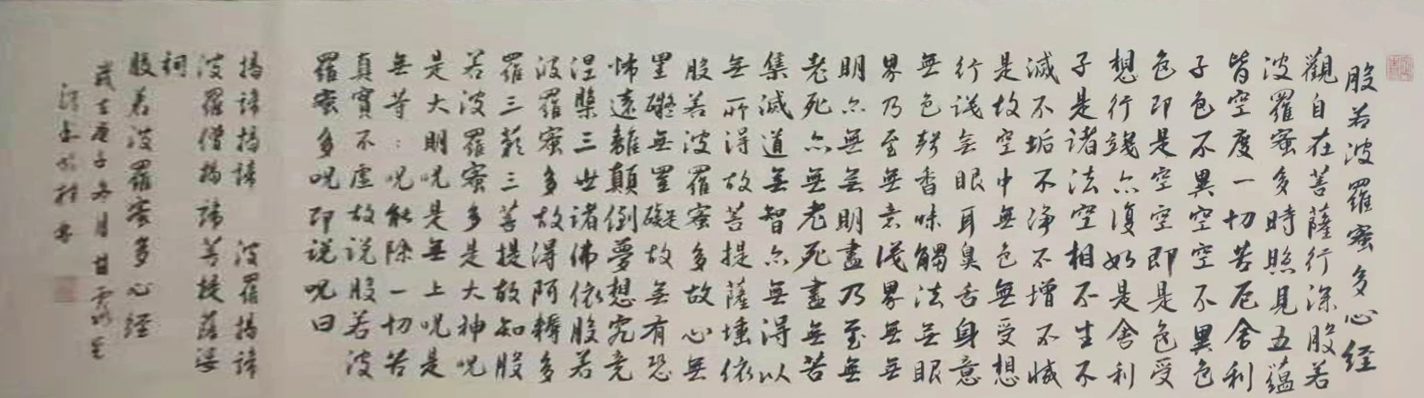 般若波羅蜜多心経
觀自在菩薩行深般若
波羅蜜多時照見五蘊
皆空度一切苦厄舍利
子色不異空空不異色
色即是空空即是色受
想行識亦復如是舍利
子是諸法空相不生不
滅不垢不净不增不減
是故空中無色無受想
行識無眼耳鼻舌身意
無色聲香味觸法無眼
界乃至無意識界無無
明亦無無明盡乃至無
老死亦無老死盡無苦
集滅道無智亦無得以
無所得故菩提薩埵依
般若波羅蜜多故心無
罣礙無罣礙故無有恐
怖遠離顛倒夢想究竟
涅槃三世諸佛依般若
波羅蜜多故得阿耨多
羅三藐三菩提故知般
若波羅蜜多是大神呪
是大明呪是無上呪是
無等：呪能除一切苦
真實不虛故说般若波
羅蜜多呪即说呪曰
揭諦揭諦 波羅揭諦
波羅僧揭諦菩提薩婆
祠
般若波羅蜜多心経
歲在庚子冬月